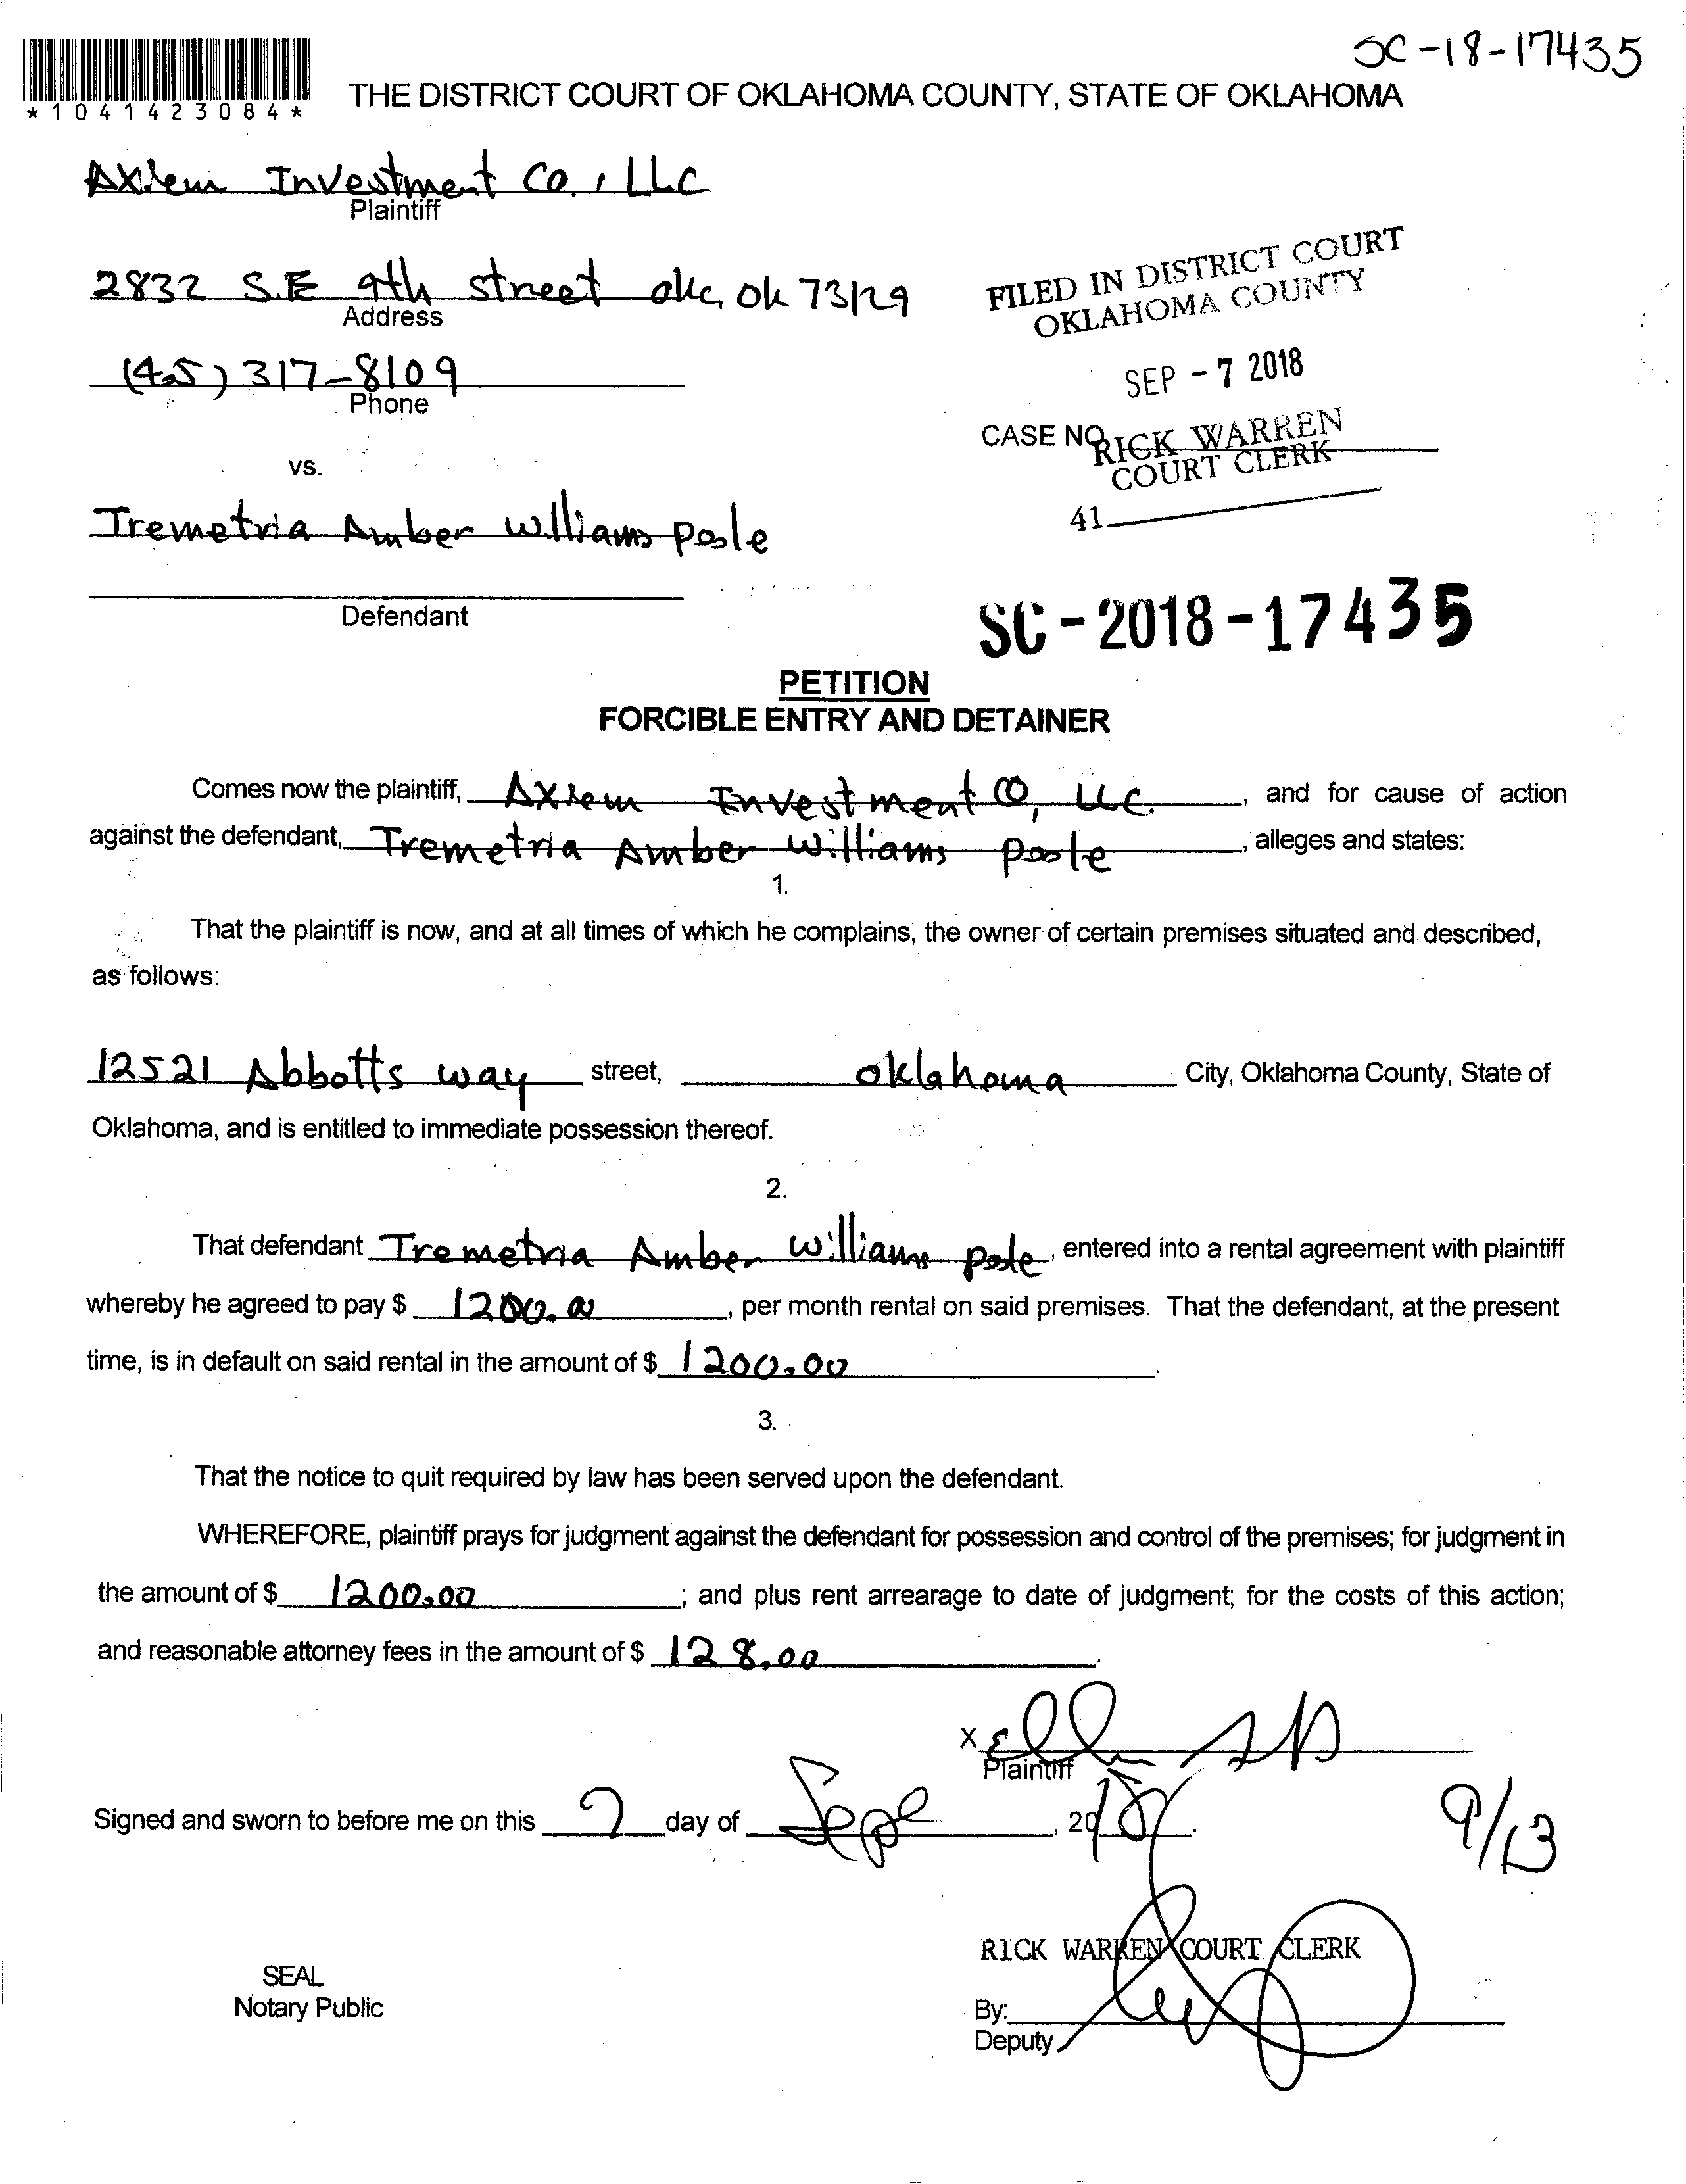 SC-18-17435
*1041423084*
THE DISTRICT COURT OF OKLAHOMA COUNTY, STATE OF OKLAHOMA
Investment Co., LLC
Plaintiff
2832 S.E 9th street okc, ok 73129
Address
(405) 317-8109
Phone
FILED IN DISTRICT COURT
OKLAHOMA COUNTY
SEP - 7 2018
CASE NO.
RICK WARREN
COURT CLERK
41
vs.
Tremetria Amber Williams Poole
Defendant
SC-2018-17435
PETITION
FORCIBLE ENTRY AND DETAINER
Comes now the plaintiff, Investment CO, LLC. , and for cause of action
against the defendant, Tremetria Amber Williams Poole , alleges and states:
1.
That the plaintiff is now, and at all times of which he complains, the owner of certain premises situated and described,
as follows:
12521 Abbotts way street, oklahoma City, Oklahoma County, State of
Oklahoma, and is entitled to immediate possession thereof.
2.
That defendant Tremetria Amber Williams Poole , entered into a rental agreement with plaintiff
whereby he agreed to pay $ 1200.00 , per month rental on said premises. That the defendant, at the present
time, is in default on said rental in the amount of $ 1200.00 .
3.
That the notice to quit required by law has been served upon the defendant.
WHEREFORE, plaintiff prays for judgment against the defendant for possession and control of the premises; for judgment in
the amount of $ 1200.00 ; and plus rent arrearage to date of judgment; for the costs of this action;
and reasonable attorney fees in the amount of $ 128.00 .
X
Plaintiff
Signed and sworn to before me on this 7 day of Sept , 2018 .
9/13
RICK WARREN COURT CLERK
SEAL
Notary Public
By:
Deputy